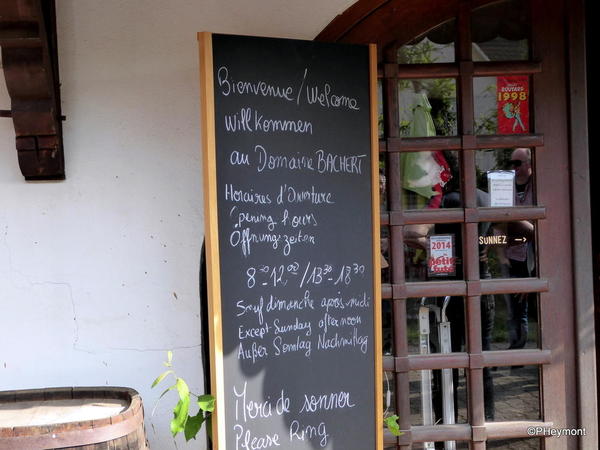 Bienvenue/Welcome
Willkommen
au Domaine BACHERT
Horaires d'Ouverture
Opening hours
Öffnungszeiten
8³⁰-12⁰⁰/13³⁰-18³⁰
Sauf dimanche après-midi
Except Sunday afternoon
Außer Sonntag Nachmittag
Merci de sonner
Please Ring
ROUTARD
1998
2014
SONNEZ →
©PHeymont